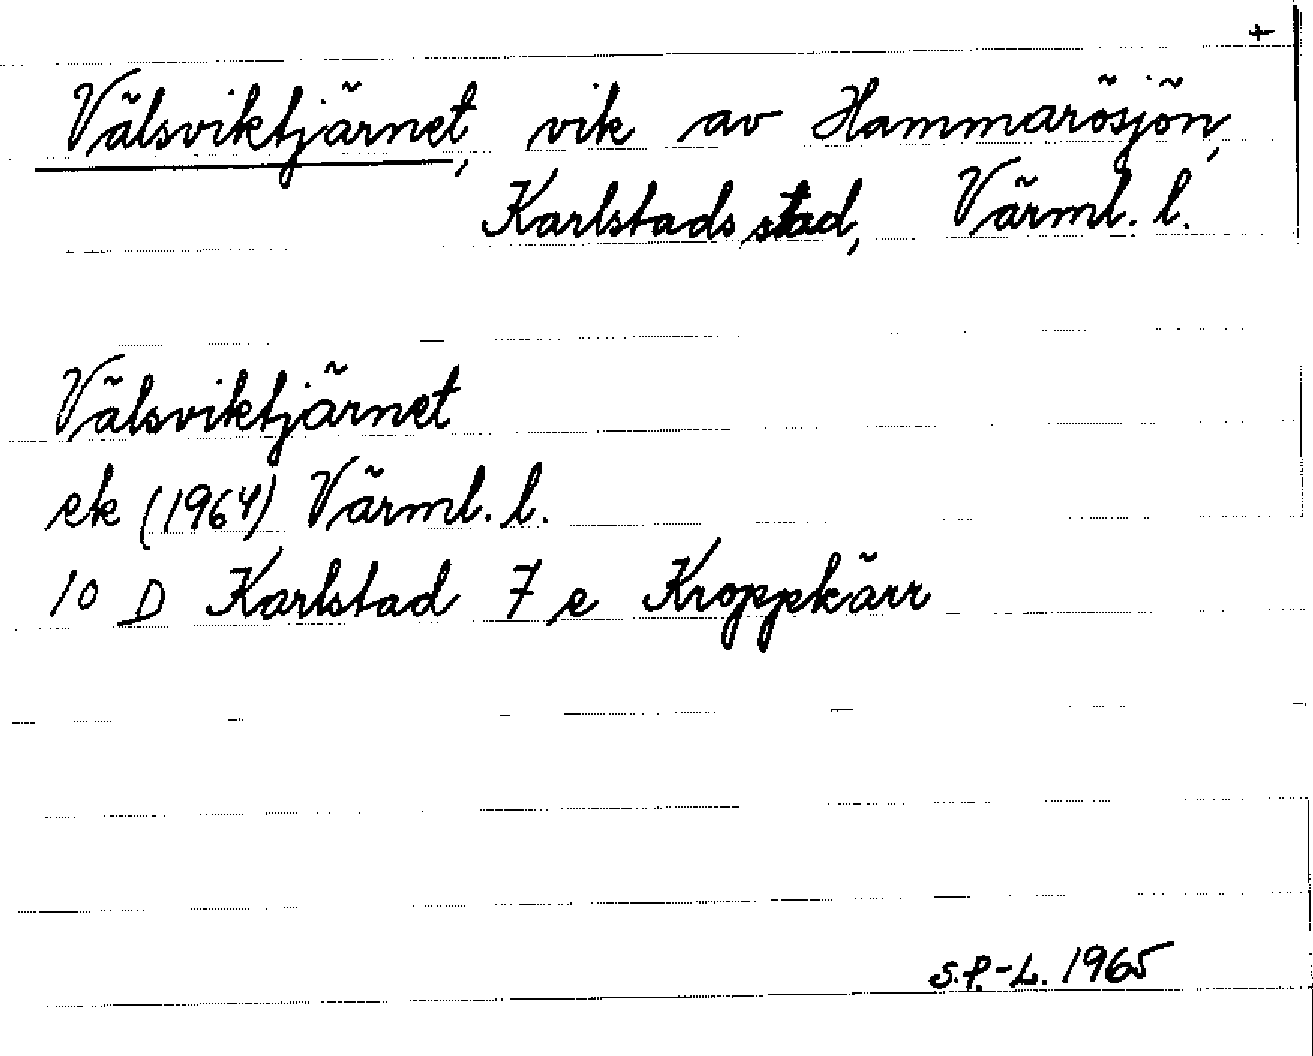 Välsviktjärnet, vik av Hammarösjön,
Karlstads stad, Värml. l.
Välsviktjärnet
ek (1964) Värml. l.
10 D Karlstad 7 e Kroppkärr
S.P.-L. 1965